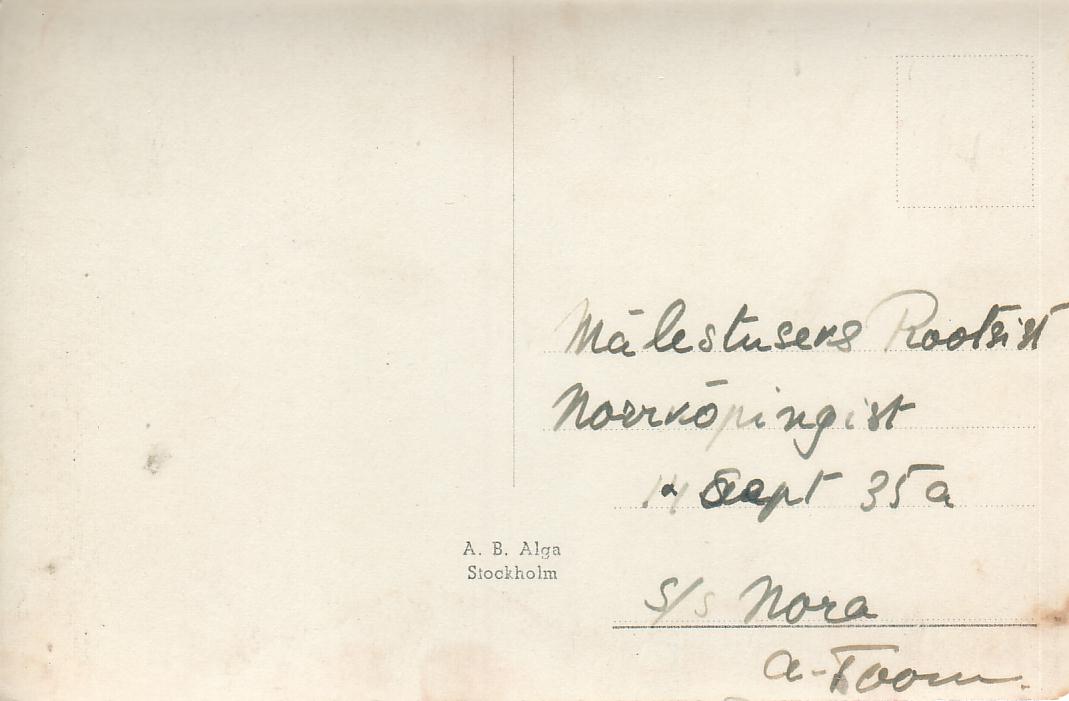 Mälestuseks Rootsist
Norrköpingist
Sept 35 a
A. B. Alga
Stockholm
s/s Nora
A. Toom.